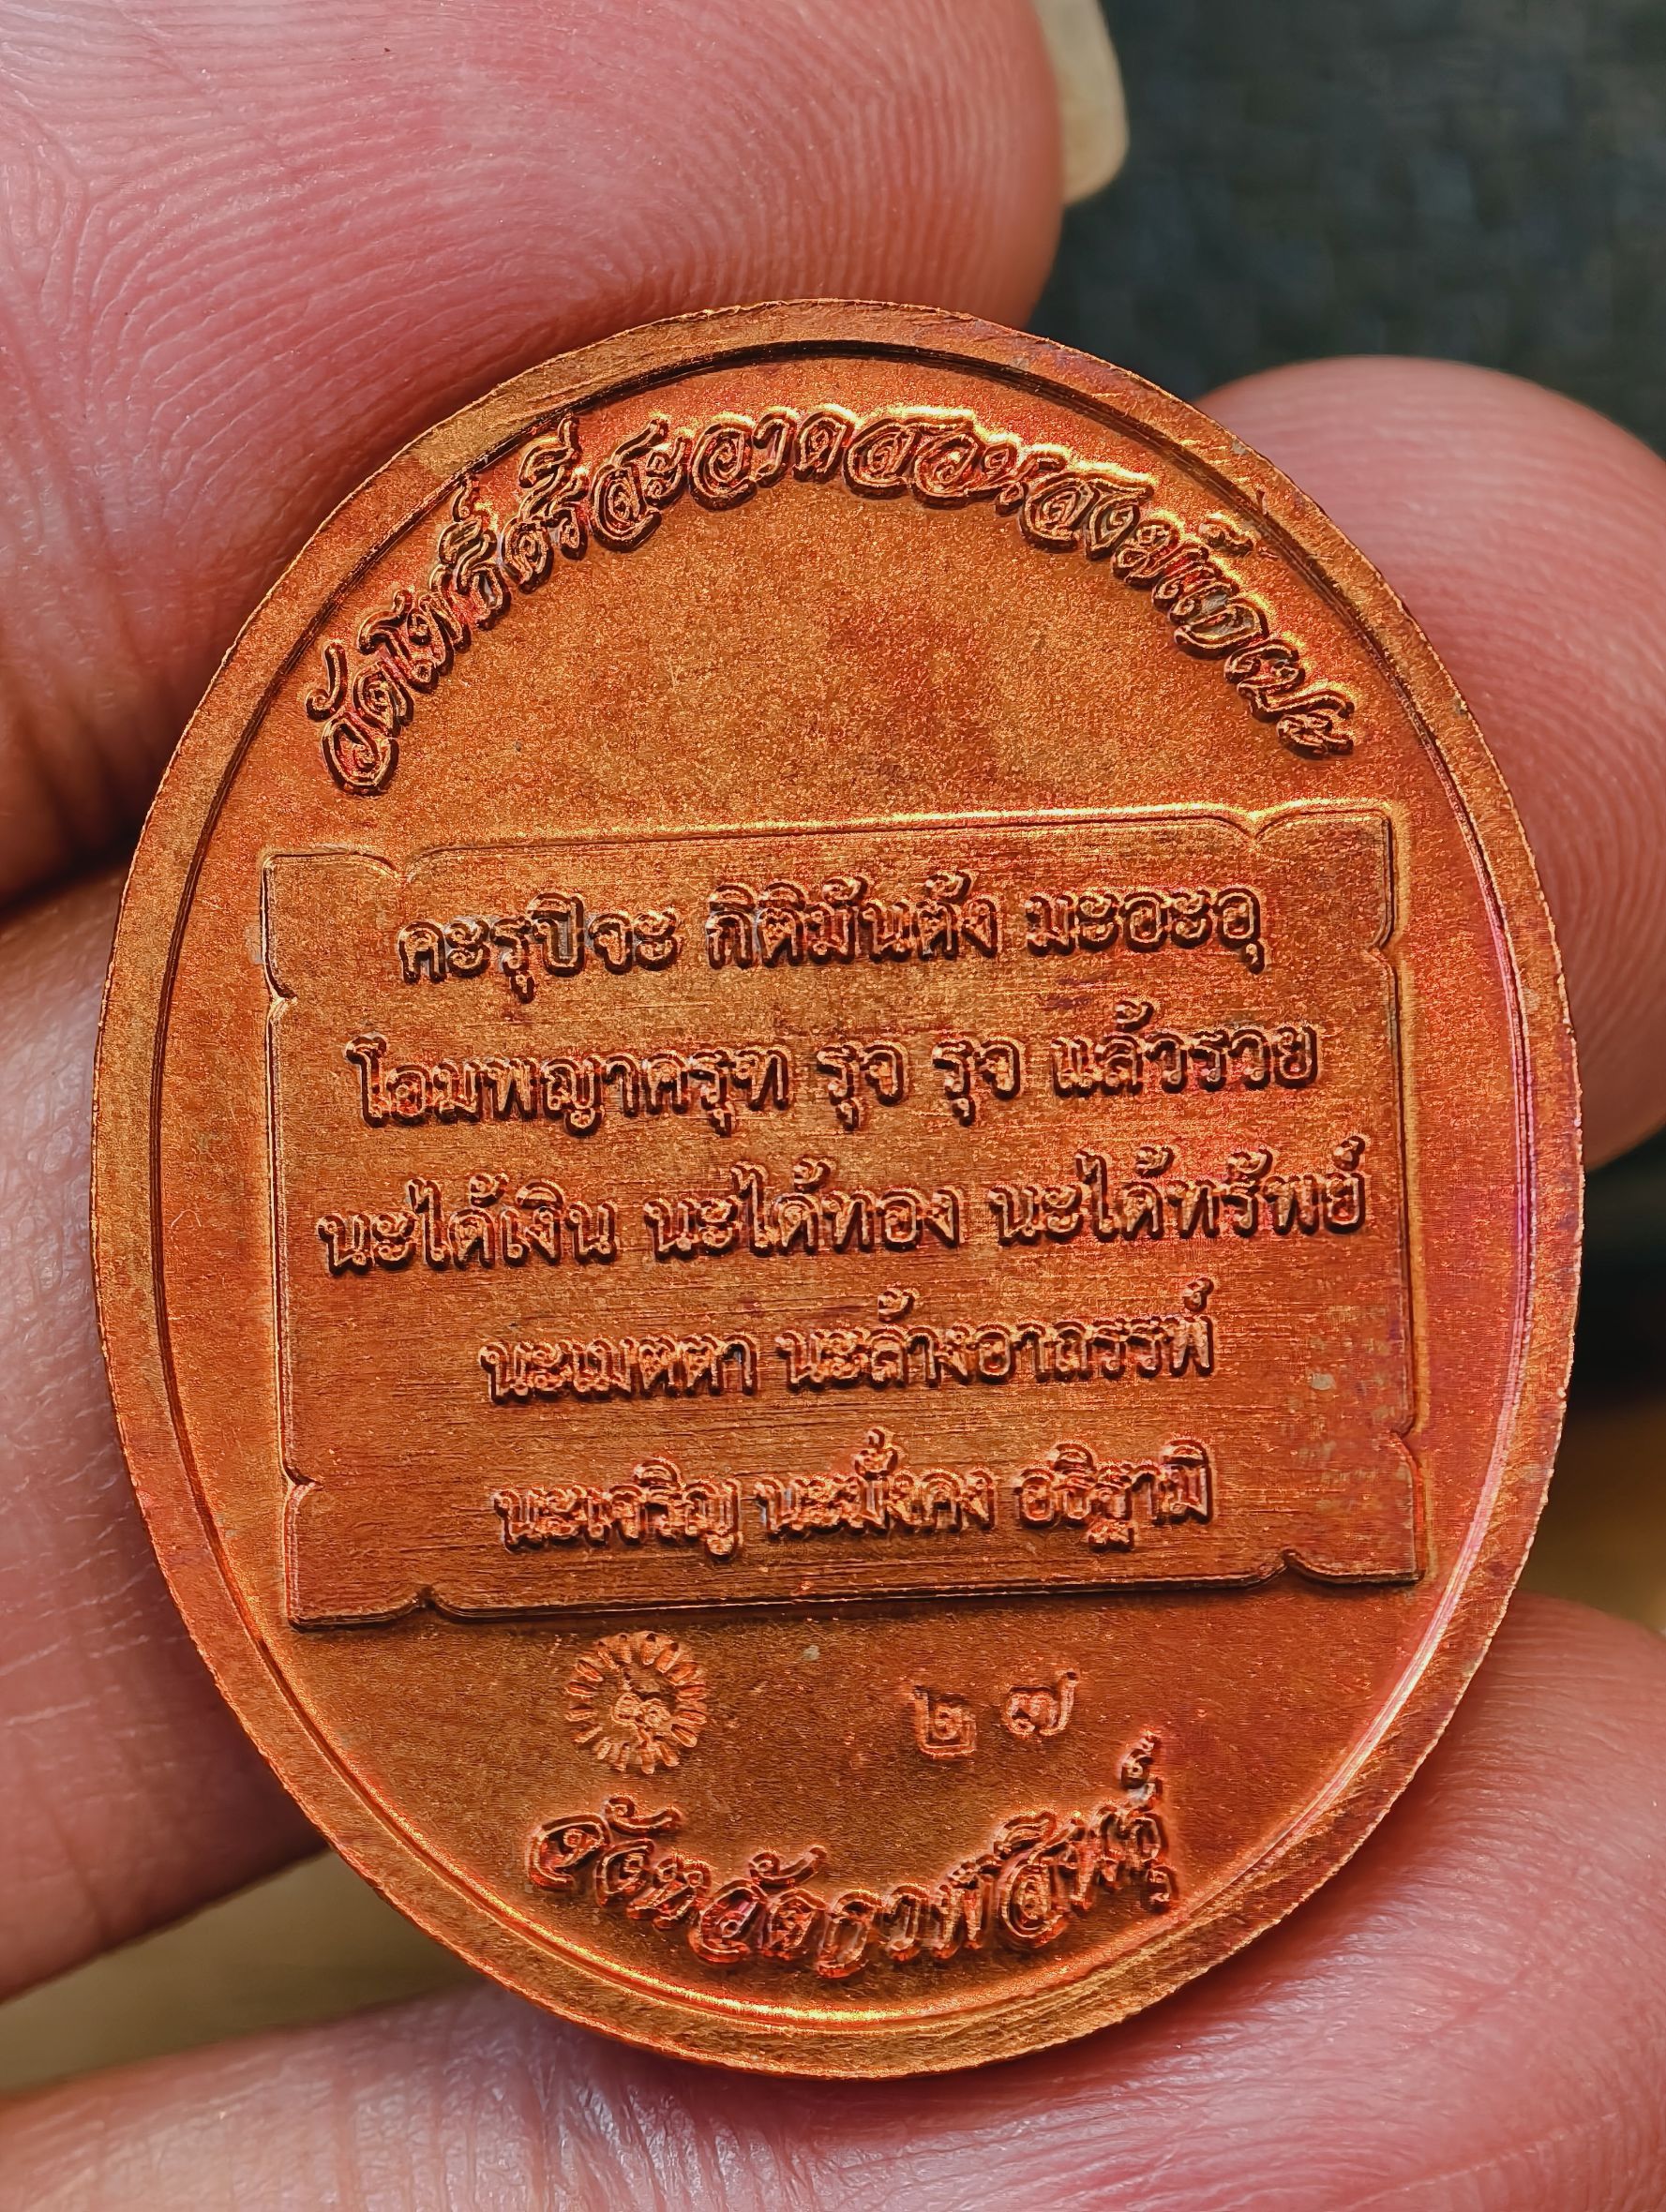 วัดโพธิ์ศรีสะอาดสวนสงฆ์แวกปะ
คะรุปิจะ กิติมันตัง มะอะอุ
โอมพญาครุฑ รุจ รุจ แล้วรวย
นะได้เงิน นะได้ทอง นะได้ทรัพย์
นะเมตตา นะล้างอาถรรพ์
นะเจริญ นะมั่งคง อธิฐามิ
๒ ๗
จังหวัดกาฬสินธุ์